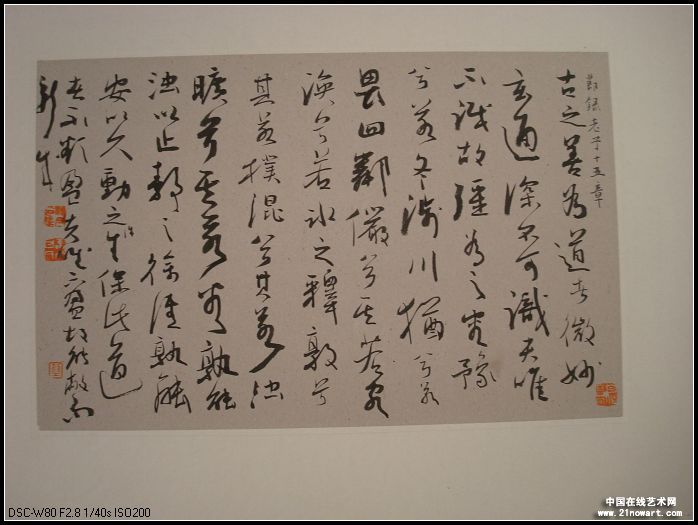 節錄老子十五章
古之善為道者微妙
玄通深不可識夫唯
不識故強為之容豫
兮若冬涉川猶兮若
畏四鄰儼兮其若客
渙兮若冰之釋敦兮
其若樸混兮其若濁
曠兮其若谷孰能
濁以止靜之徐清孰能
安以久動之徐生保此道
者不欲盈夫唯不盈故能敝而
新成
DSC-W80 F2.8 1/40s ISO200
中国在线艺术网
www.21nowart.com